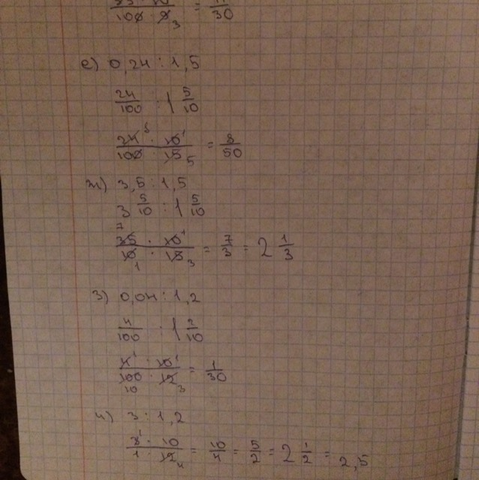 е) 0,24 : 1,5
24/100 : 1 5/10
24 8 · 10 1 / 100 · 15 5 = 8/50
ж) 3,5 : 1,5
3 5/10 : 1 5/10
35 7 · 10 1 / 10 1 · 15 3 = 7/3 = 2 1/3
з) 0,04 : 1,2
4/100 : 1 2/10
4 1 · 10 1 / 100 10 · 12 3 = 1/30
и) 3 : 1,2
3 1 · 10 / 1 · 12 4 = 10/4 = 5/2 = 2 1/2 = 2,5